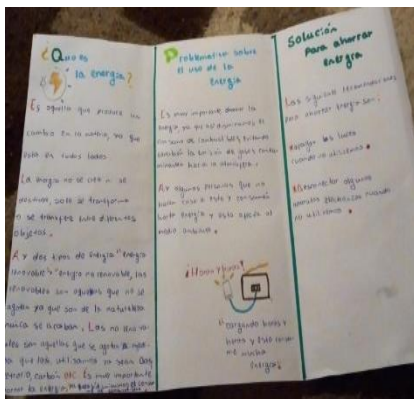 ¿Que es
la energía?
Es aquello que produce un
cambio en la materia, ya que
esta en todos lados
La energia no se crea ni se
destruye, solo se transforma
o se transfiere entre diferentes
objetos.
Ay dos tipos de energia "energia
renovable" "energia no renovable, las
renovables son aquellas que no se
agotan ya que son de la naturaleza
nunca se acaban. Las no renova-
bles son aquellas que se agotan
que las utilizamos ya sean Gas
carbón etc. Es muy importante
la energía,
Problematica sobre
el uso de la
Energia
Es muy importante ahorrar la
energia, ya que
consumo de combustibles, evitamos
también la emisión de gases conta-
minantes hacia la atmosfera.
Ay algunas personas que no
hacen caso a esto y consumen
mucha energia y esto afecta al
medio ambiente.
"Cargando horas y
horas y esto consu-
me mucha
energia."
Solución
para ahorrar
energia
Las siguientes recomendaciones
para ahorrar energia son:
apagar las luces
cuando no utilicemos.
Desconectar algunos
aparatos eléctricos cuando
no utilicemos.